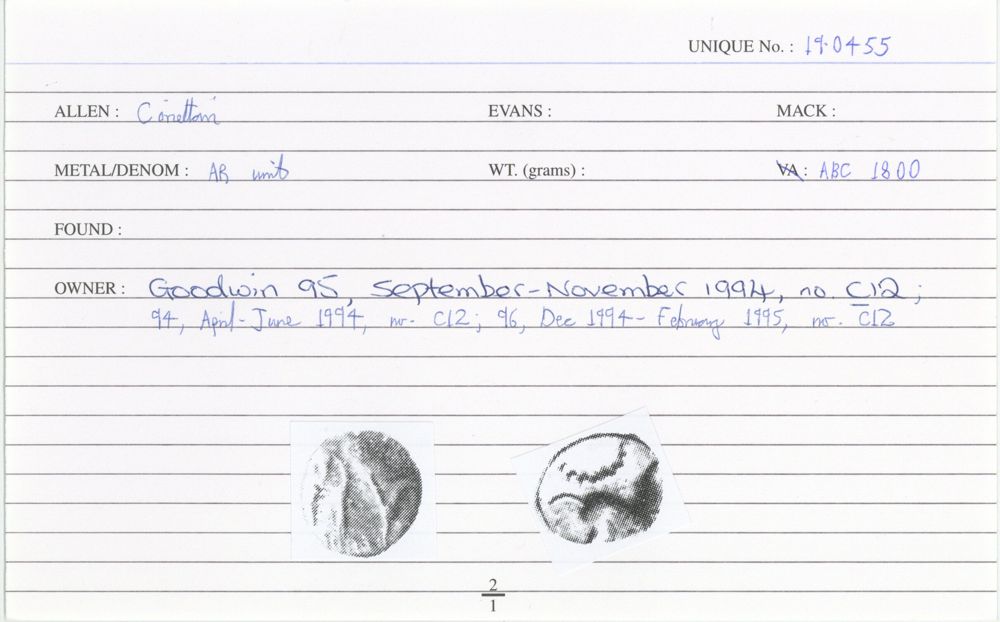 UNIQUE No. : 19·0455
ALLEN : EVANS : MACK :
METAL/DENOM : AR unit WT. (grams) : VA : ABC 1800
FOUND :
OWNER : Goodwin 95, September-November 1994, no. C12 ;
94, April-June 1994, no. C12; 96, Dec 1994-February 1995, no. C12
2
1